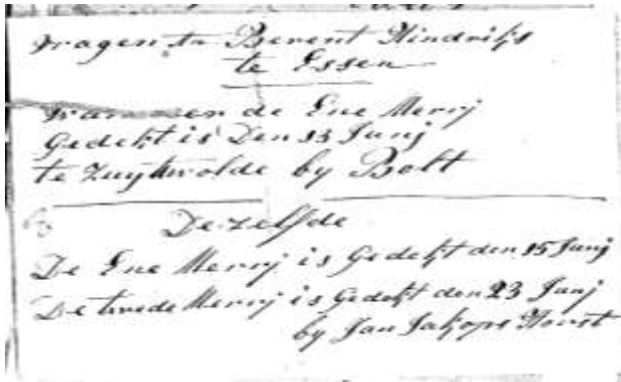 vragen ta Berent Hindriks
te Essen
waar van de Ene Merrij
Gedekt is Den 13 Junij
te Zuijdwolde by Bolt
Dezelfde
De Ene Merrij is Gedekt den 15 Junij
De twede Merrij is Gedekt den 23 Junij
by Jan Jakops Horst